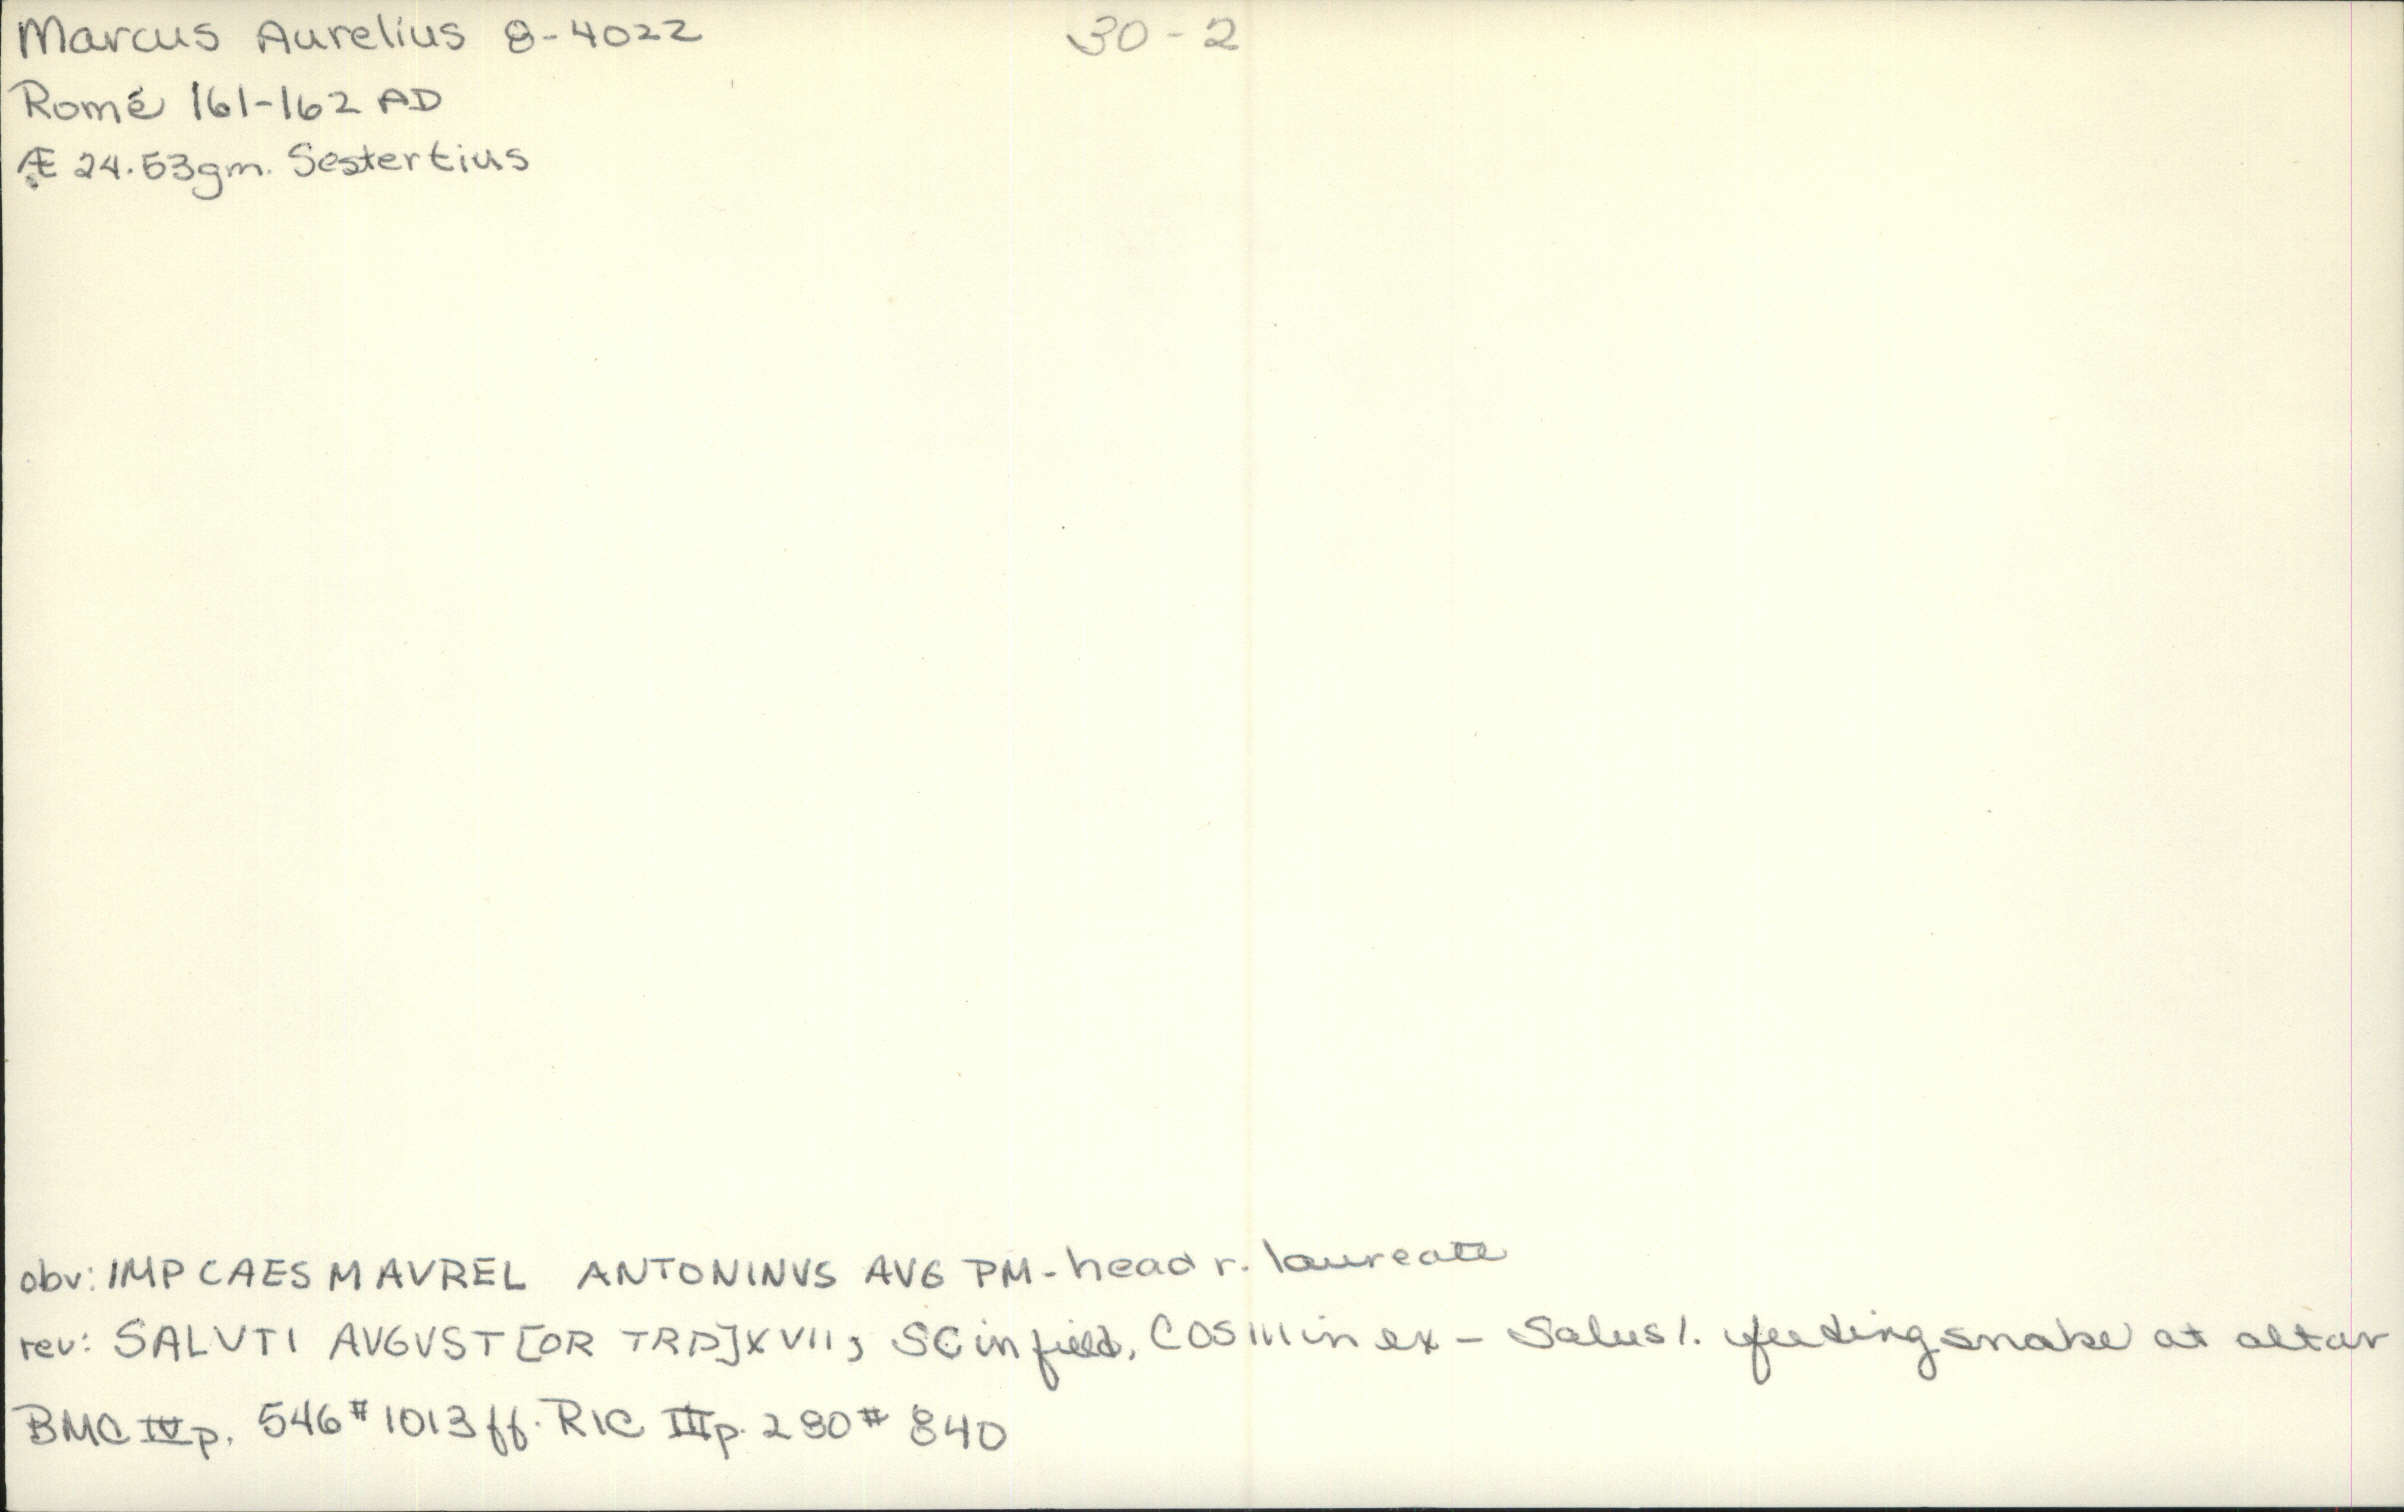 Marcus Aurelius 8-4022 30-2
Rome 161-162 AD
Æ 24.53gm. Sestertius
obv: IMP CAES M AVREL ANTONINVS AVG PM - head r. laureate
rev: SALVTI AVGVST [OR TRP] XVII, SC in field, COS III in ex - Salus l. feeding snake at altar
BMC IV p. 546 # 1013 ff. RIC III p. 280 # 840